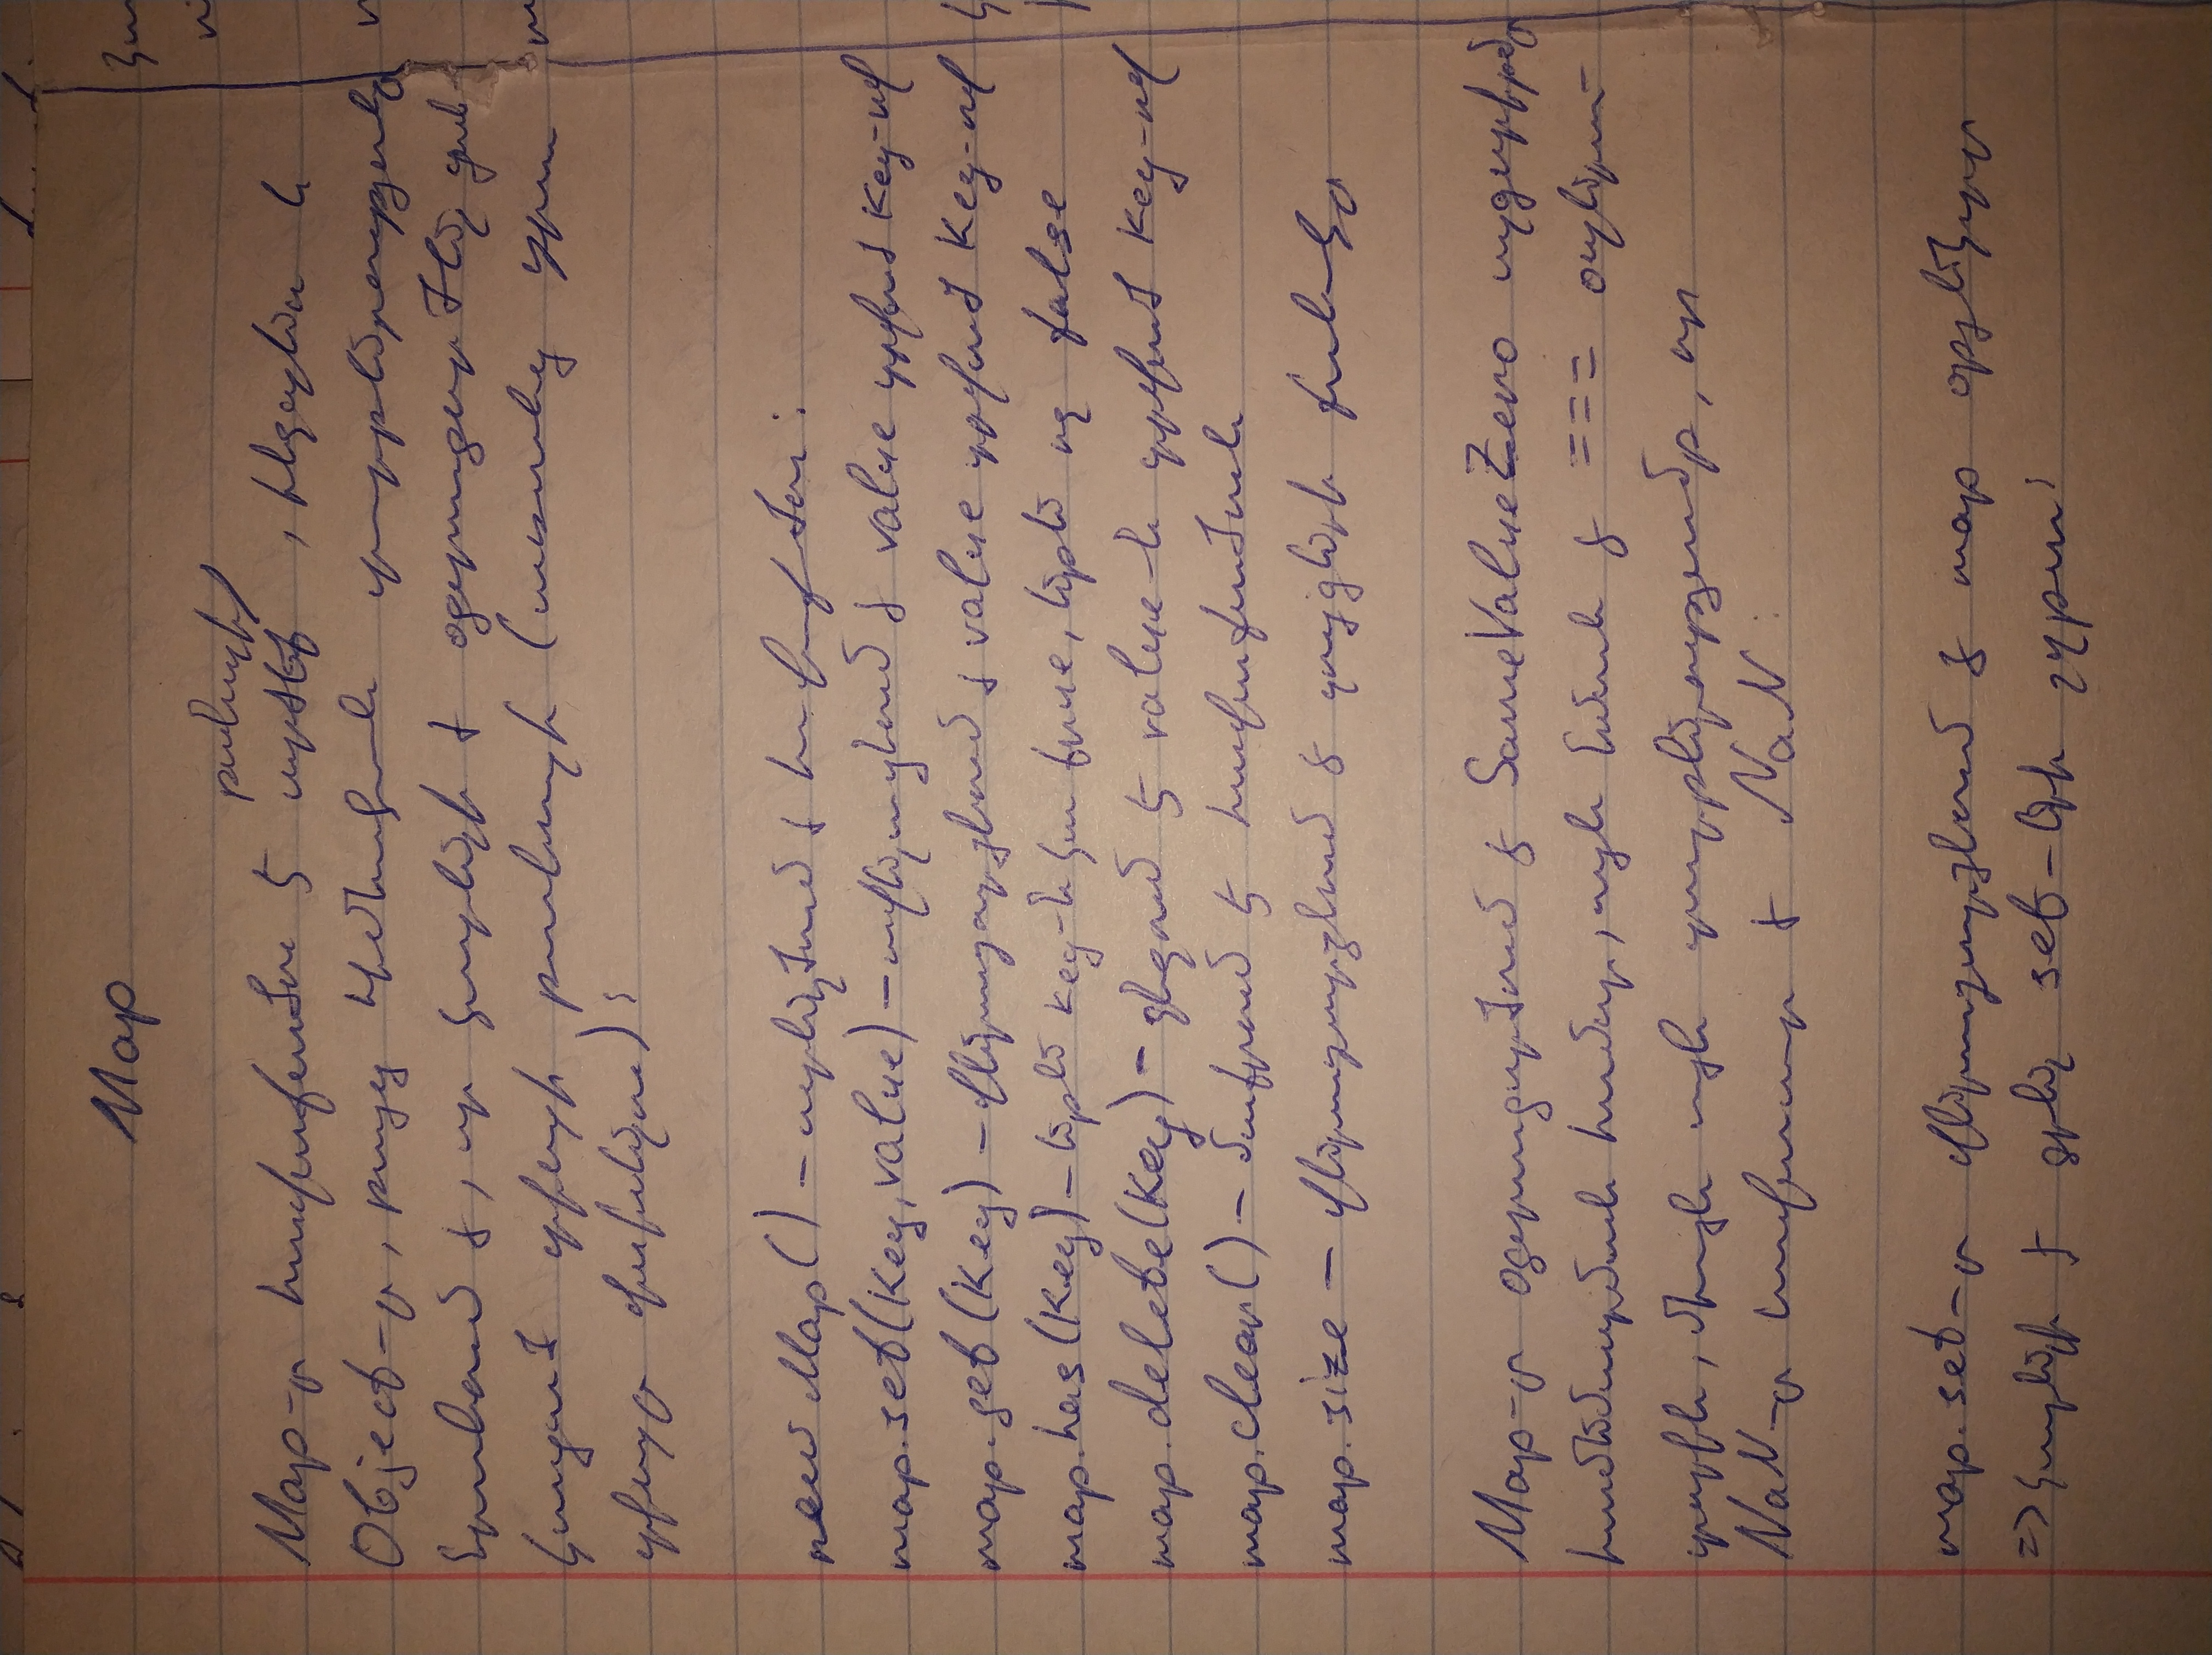 Map
բանալի/
Map-ը հավաքածու է արժեք , ինչպես և
Object-ը, բայց հիմնական տարբերությունը
նրանում է, որ կարելի է օգտագործել ցան-
կացած տիպի բանալի (առանց դրա
տիպը փոխելու)։
new Map() – ստեղծում է հավաքածու։
map.set(key, value) – ավելացնում է value տրված key-ով
map.get(key) – վերադարձնում է value տրված key-ով
map.has(key) – եթե key-ն կա true, եթե ոչ false
map.delete(key) – ջնջում է value-ն տրված key-ով
map.clear() – մաքրում է հավաքածուն
map.size – վերադարձնում է տարրերի քանակը
Map-ը օգտագործում է SameValueZero ալգորիթմը
համեմատման համար, այն նման է === օպերա-
տորին, միայն այն տարբերությամբ, որ
NaN-ը հավասար է NaN։
map.set-ը վերադարձնում է map օբյեկտը
=> կարելի է գրել set-երի շղթա։